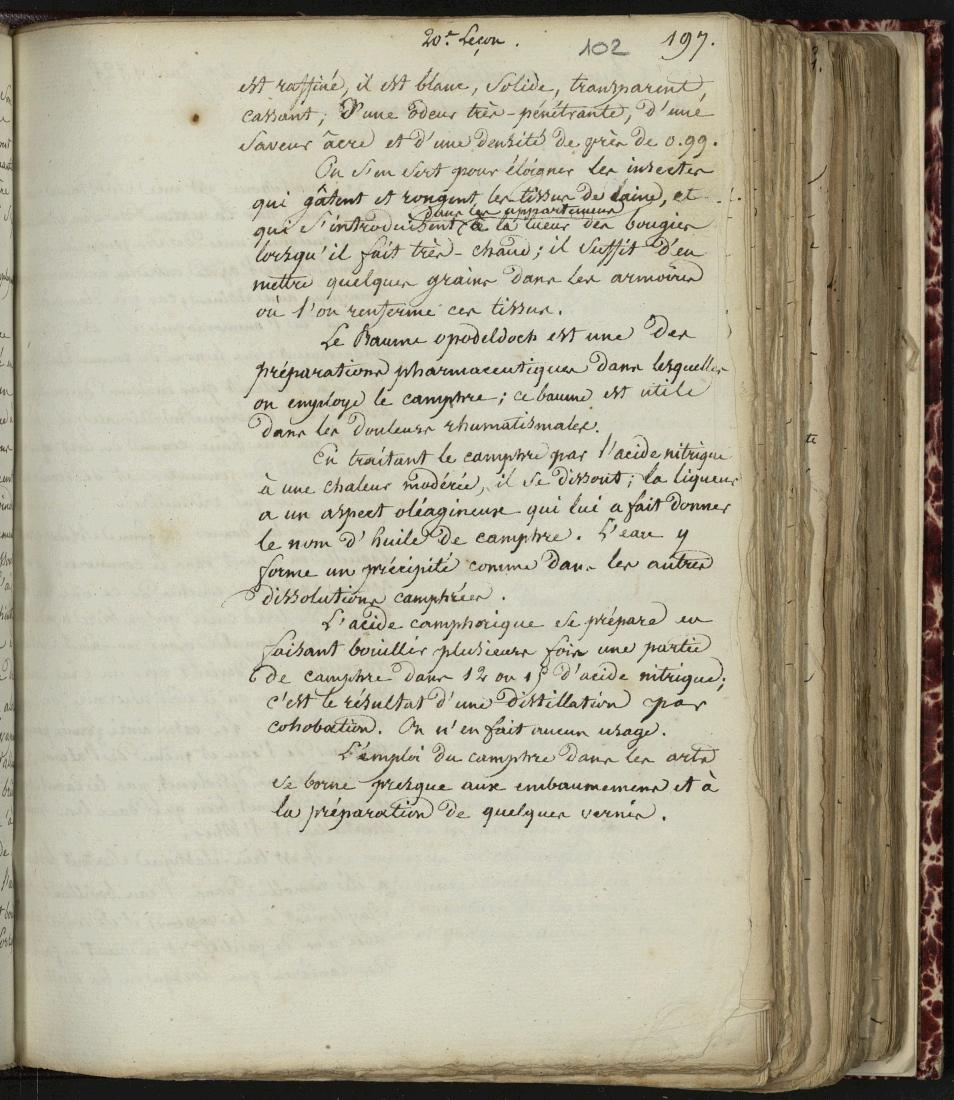 20e. Leçon. 102 197.
est raffiné, il est blanc, solide, transparent,
cassant; d'une odeur très-pénétrante, d'une
saveur âcre et d'une densité de près de 0.99.
On s'en sert pour éloigner les insectes
qui gâtent et rongent les tissus de laine, et
dans les appartemens
qui s'introduisent à la lueur des bougies
lorsqu'il fait très-chaud; il suffit d'en
mettre quelques grains dans les armoires
où l'on renferme ces tissus.
Le Baume opodeldoch est une des
préparations pharmaceutiques dans lesquelles
on employe le camphre; ce baume est utile
dans les douleurs rhumatismales.
En traitant le camphre par l'acide nitrique
à une chaleur modérée, il se dissout; la liqueur
a un aspect oléagineux qui lui a fait donner
le nom d'huile de camphre. L'eau y
forme un précipité comme dans les autres
dissolutions camphrées.
L'acide camphorique se prépare en
faisant bouillir plusieurs fois une partie
de camphre dans 12 ou 15 d'acide nitrique;
c'est le résultat d'une distillation par
cohobation. On n'en fait aucun usage.
L'emploi du camphre dans les arts
se borne presque aux embaumemens et à
la préparation de quelques vernis.